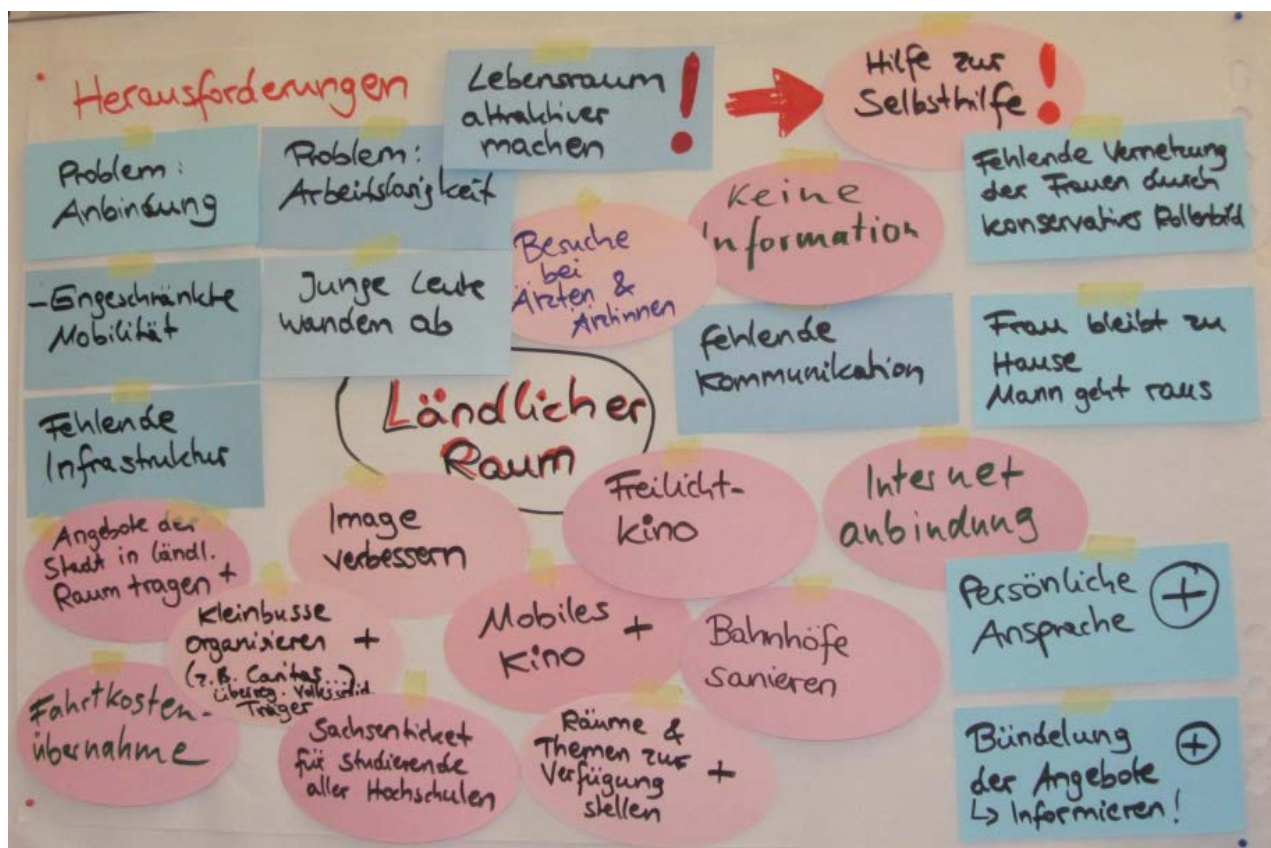 Herausforderungen
Lebensraum !
attraktiver
machen
Hilfe zur
Selbsthilfe !
Problem:
Anbindung
Problem:
Arbeitslosigkeit
Keine
Information
Fehlende Vernetzung
der Frauen durch
konservatives Rollenbild
Besuche
bei
Ärzten &
Ärztinnen
- Engeschränkte
Mobilität
Junge Leute
wandern ab
fehlende
Kommunikation
Frau bleibt zu
Hause
Mann geht raus
Ländlicher
Raum
Fehlende
Infrastruktur
Image
verbessern
Freilicht-
kino
Internet
anbindung
Angebote der
Stadt in ländl.
Raum tragen +
Kleinbusse
organisieren +
(z.B. Caritas...)
überreg. Volkssolid.
Träger
Mobiles +
Kino
Bahnhöfe
sanieren
Persönliche +
Ansprache
Fahrtkosten-
übernahme
Sachsenticket
für Studierende
aller Hochschulen
Räume &
Themen zur
Verfügung +
stellen
Bündelung +
der Angebote
↳ Informieren!